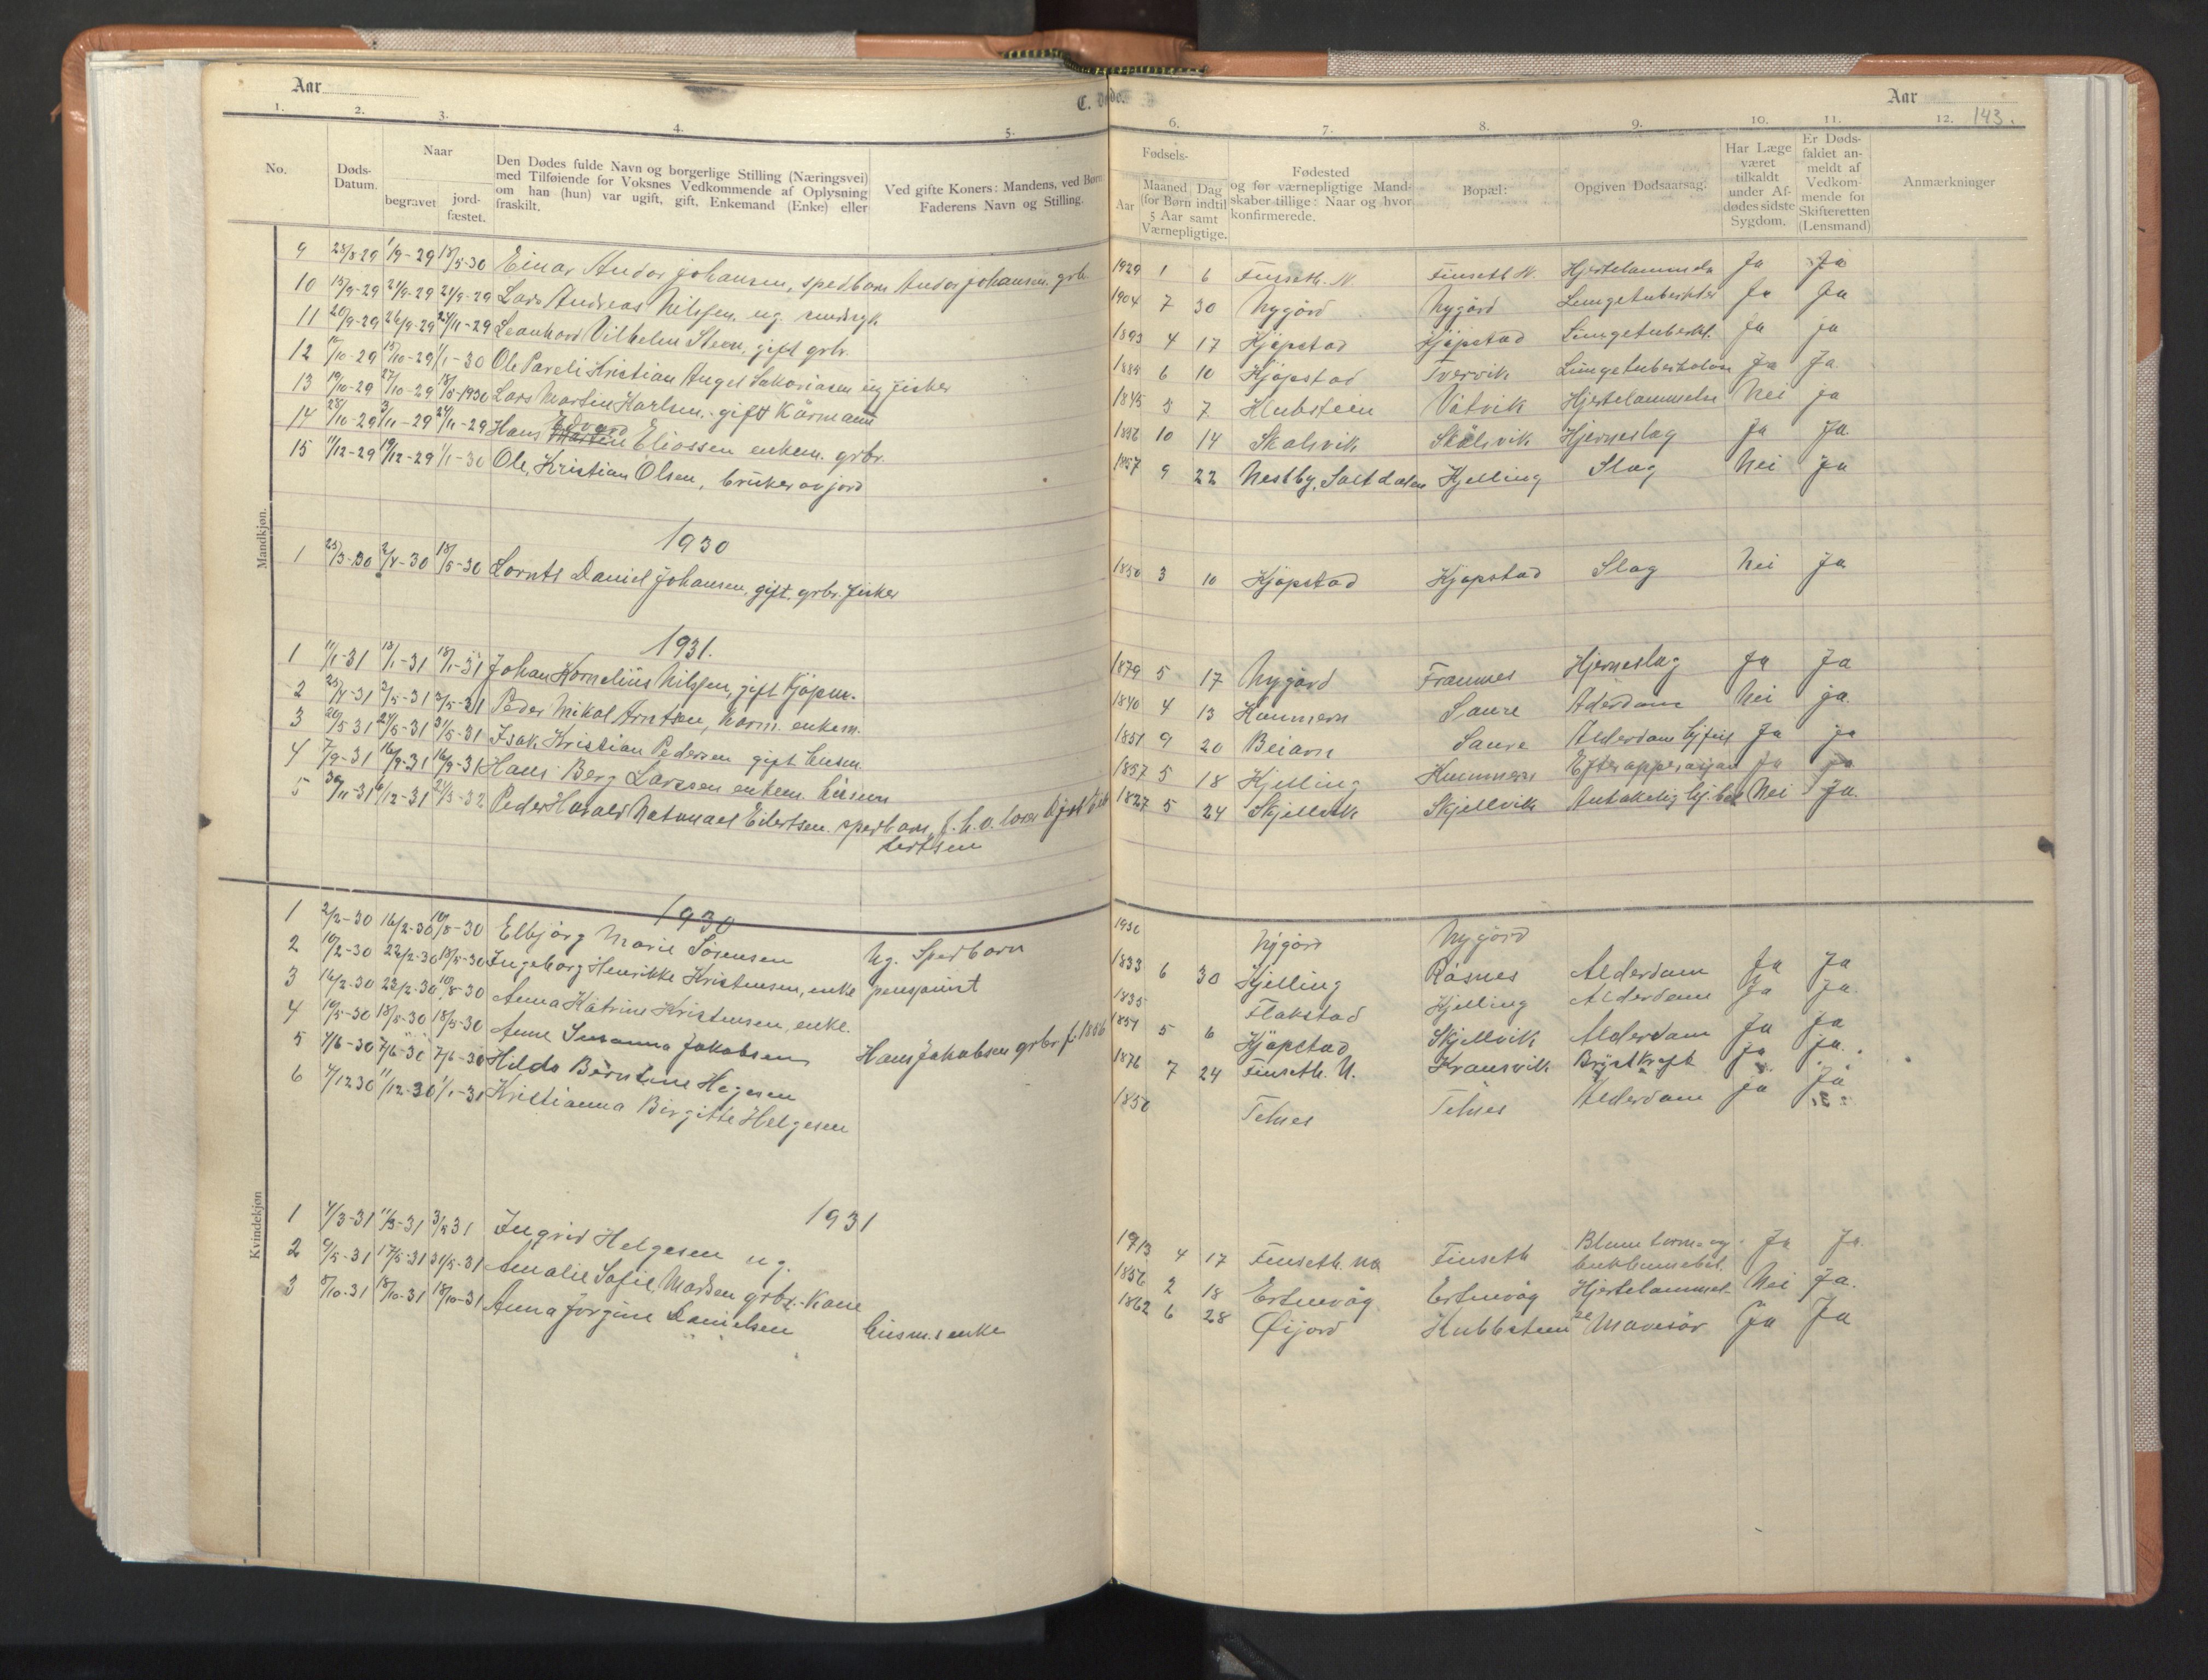 Aar
C. Døde.
Aar
143.
1. 2. 3. 4. 5. 6. 7. 8. 9. 10. 11. 12.
No.
Døds-Datum.
Naar
begravet
jord-fæstet.
Den Dødes fulde Navn og borgerlige Stilling (Næringsvei) med Tilføiende for Voksnes Vedkommende af Oplysning om han (hun) var ugift, gift, Enkemand (Enke) eller fraskilt.
Ved gifte Koners: Mandens, ved Børn Faderens Navn og Stilling.
Fødsels-
Aar
Maaned Dag (for Børn indtil 5 Aar samt Værnepligtige.
Fødested og for værnepligtige Mandskaber tillige: Naar og hvor konfirmerede.
Bopæl:
Opgiven Dødsaarsag.
Har Læge været tilkaldt under Afdødes sidste Sygdom.
Er Dødsfaldet anmeldt af Vedkommende for Skifteretten (Lensmand)
Anmærkninger
Mandkjøn.
9 28/8-29 1/9-29 18/5-30 Einar Andor Johansen, spedbarn Andor Johansen. grb. 1929 1 6 Finseth. N. Finseth N. Hjertelammelse Ja Ja
10 15/9-29 21/9-29 21/9-29 Lars Andreas Nilssen. ug. sindsyk 1904 7 30 Nygård Nygård Lungetuberkler Ja Ja
11 20/9-29 26/9-29 24/11-29 Leonhard Vilhelm Steen, gift grbr. 1893 4 17 Kjøpstad Kjøpstad Lungetuberkl. Ja ja
12 /10-29 15/10-29 1/1-30 Ole Pareli Kristian Angel Sakariasen ug fisker 1889 6 10 Kjøpstad Tvervik Lungetuberkolose Ja Ja.
13 19/10-29 27/10-29 18/5-1930 Lars Martin Karlsen. gift Kårmann 1845 5 7 Hubstein Våtvik Hjertelammelse Nei ja
14 28/10-29 3/11-29 24/11-29 Hans Edvard Eliassen enkem. grbr. 1856 10 14 Skålsvik Skålsvik Hjerneslag Ja Ja.
15 11/12-29 19/12-29 1/1-30 Ole Kristian Olsen, bruker av jord 1857 9 22 Nestby, Saltdalen Kjelling Slag Nei Ja
1930
1 25/3-30 2/4-30 18/5-30 Lornts Daniel Johansen, gift. grbr. fisker 1850 3 10 Kjøpstad Kjøpstad Slag Nei Ja
1931.
1 11/1-31 18/1-31 18/1-31 Johan Kornelius Nilssen, gift kjøpm. 1879 5 17 Nygård Framnes Hjerneslag Ja Ja
2 25/4-31 3/5-31 3/5-31 Peder Mikal Arntsen, kårm. enkem. 1840 4 13 Hammern Saure Alderdom Nei ja.
3 20/5 31 24/5-31 31/5-31 Isak Kristian Pedersen gift husm. 1851 9 20 Beiarn Saure Alderdom hjfeil Ja ja
4 7/9-31 16/9-31 16/9-31 Hans Berg Larssen enkem. husm 1857 5 18 Kjelling Hammern Ja ja
5 30/11-31 6/12-31 24/3-32 Peder Harald Natanael Edvartsen. spedbarn, f. h. o. 1827 5 24 Skjellvik Skjellvik Nei Ja.
Kvindekjøn
1930
1 2/2-30 16/2-30 18/5-30 Elbjørg Marie Sørensen Ug. Spedbarn 1930 Nygård Nygård
2 10/2-30 22/2-30 18/5-30 Ingeborg Henrikke Kristensen, enke pensjonist 1833 6 30 Kjelling Råsnes Alderdom Ja Ja
3 16/2-30 22/2-30 18/5-30 Anna Katrine Kristensen, enke. 1835 Flakstad Kjelling Alderdom Ja Ja.
4 10/5-30 18/5-30 18/5-30 Anne Susanna Jakobsen Hans Jakobsen grbr f. 1856 1854 5 6 Kjøpstad Skjellvik Alderdom Ja Ja
5 4/6-30 7/6-30 7/6-30 Hilda Berntine Hegesen 1876 7 24 Finseth. N. Kransvik Brystkreft Ja Ja.
6 4/12 30 11/12-30 1/1-31 Kristianna Birgitte Helgesen 1850 Telnes Telnes Alderdom ja Ja
1931
1 4/3-31 11/3-31 3/5 31 Ingrid Helgesen ug. 1913 4 17 Finseth. no. Finseth Ja Ja.
2 9/5-31 17/5-31 31/5-31 Amalie Sofie Madsen grbr.-Kone 1856 2 18 Ertenvåg Ertenvåg Hjertelammelse Nei Ja.
3 8/10-31 18/10-31 18/10-31 Anna Jørgine Danielsen husm.s enke 1862 6 28 Øijord Hubbsteen Mavesår Ja Ja